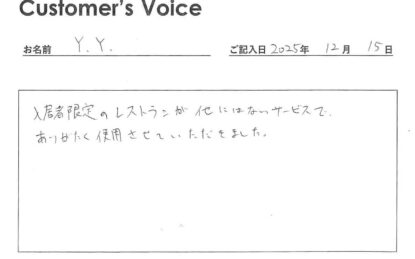 Customer's Voice
お名前 Y.Y. ご記入日 2025年 12月 15日
入居者限定のレストランが他にはないサービスで、
ありがたく使用させていただきました。